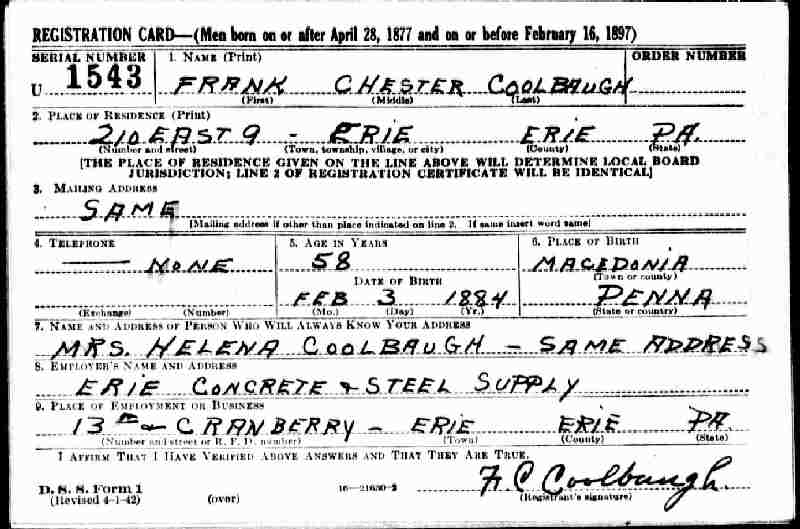 REGISTRATION CARD—(Men born on or after April 28, 1877 and on or before February 16, 1897)
SERIAL NUMBER 1. NAME (Print) ORDER NUMBER
U 1543 FRANK CHESTER COOLBAUGH
(First) (Middle) (Last)
2. PLACE OF RESIDENCE (Print)
210 EAST 9 - ERIE ERIE PA.
(Number and street) (Town, township, village, or city) (County) (State)
[THE PLACE OF RESIDENCE GIVEN ON THE LINE ABOVE WILL DETERMINE LOCAL BOARD
JURISDICTION; LINE 2 OF REGISTRATION CERTIFICATE WILL BE IDENTICAL]
3. MAILING ADDRESS
SAME
[Mailing address if other than place indicated on line 2. If same insert word same]
4. TELEPHONE 5. AGE IN YEARS 6. PLACE OF BIRTH
— NONE 58 MACEDONIA
DATE OF BIRTH (Town or county)
FEB 3 1884 PENNA
(Exchange) (Number) (Mo.) (Day) (Yr.) (State or country)
7. NAME AND ADDRESS OF PERSON WHO WILL ALWAYS KNOW YOUR ADDRESS
MRS. HELENA COOLBAUGH - SAME ADDRESS
8. EMPLOYER'S NAME AND ADDRESS
ERIE CONCRETE & STEEL SUPPLY
9. PLACE OF EMPLOYMENT OR BUSINESS
13TH & CRANBERRY - ERIE ERIE PA.
(Number and street or R. F. D. number) (Town) (County) (State)
I AFFIRM THAT I HAVE VERIFIED ABOVE ANSWERS AND THAT THEY ARE TRUE.
F C Coolbaugh.
D. S. S. Form 1 16—21630-2 (Registrant's signature)
(Revised 4-1-42) (over)